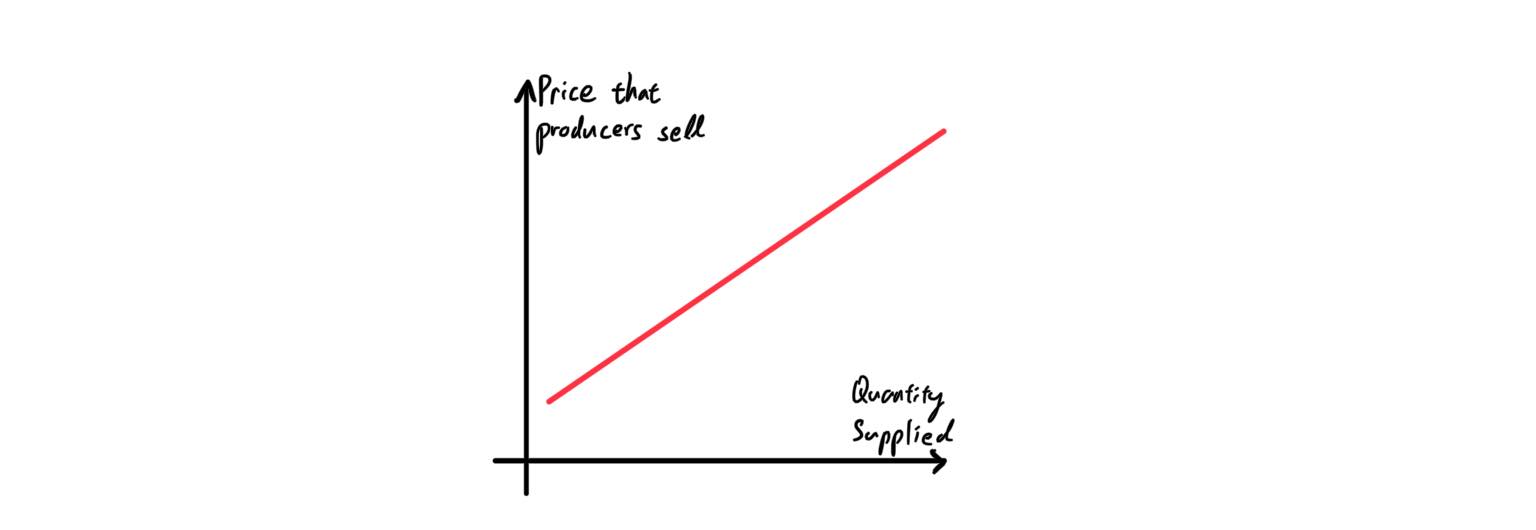 Price that
producers sell
Quantity
Supplied